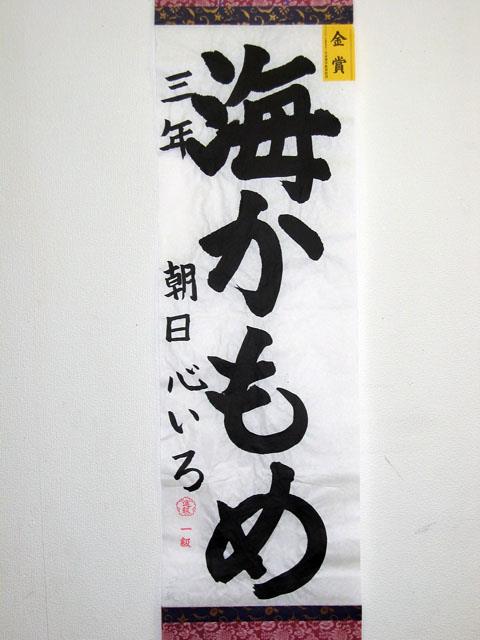 金賞
海かもめ
三年 朝日心いろ
一級